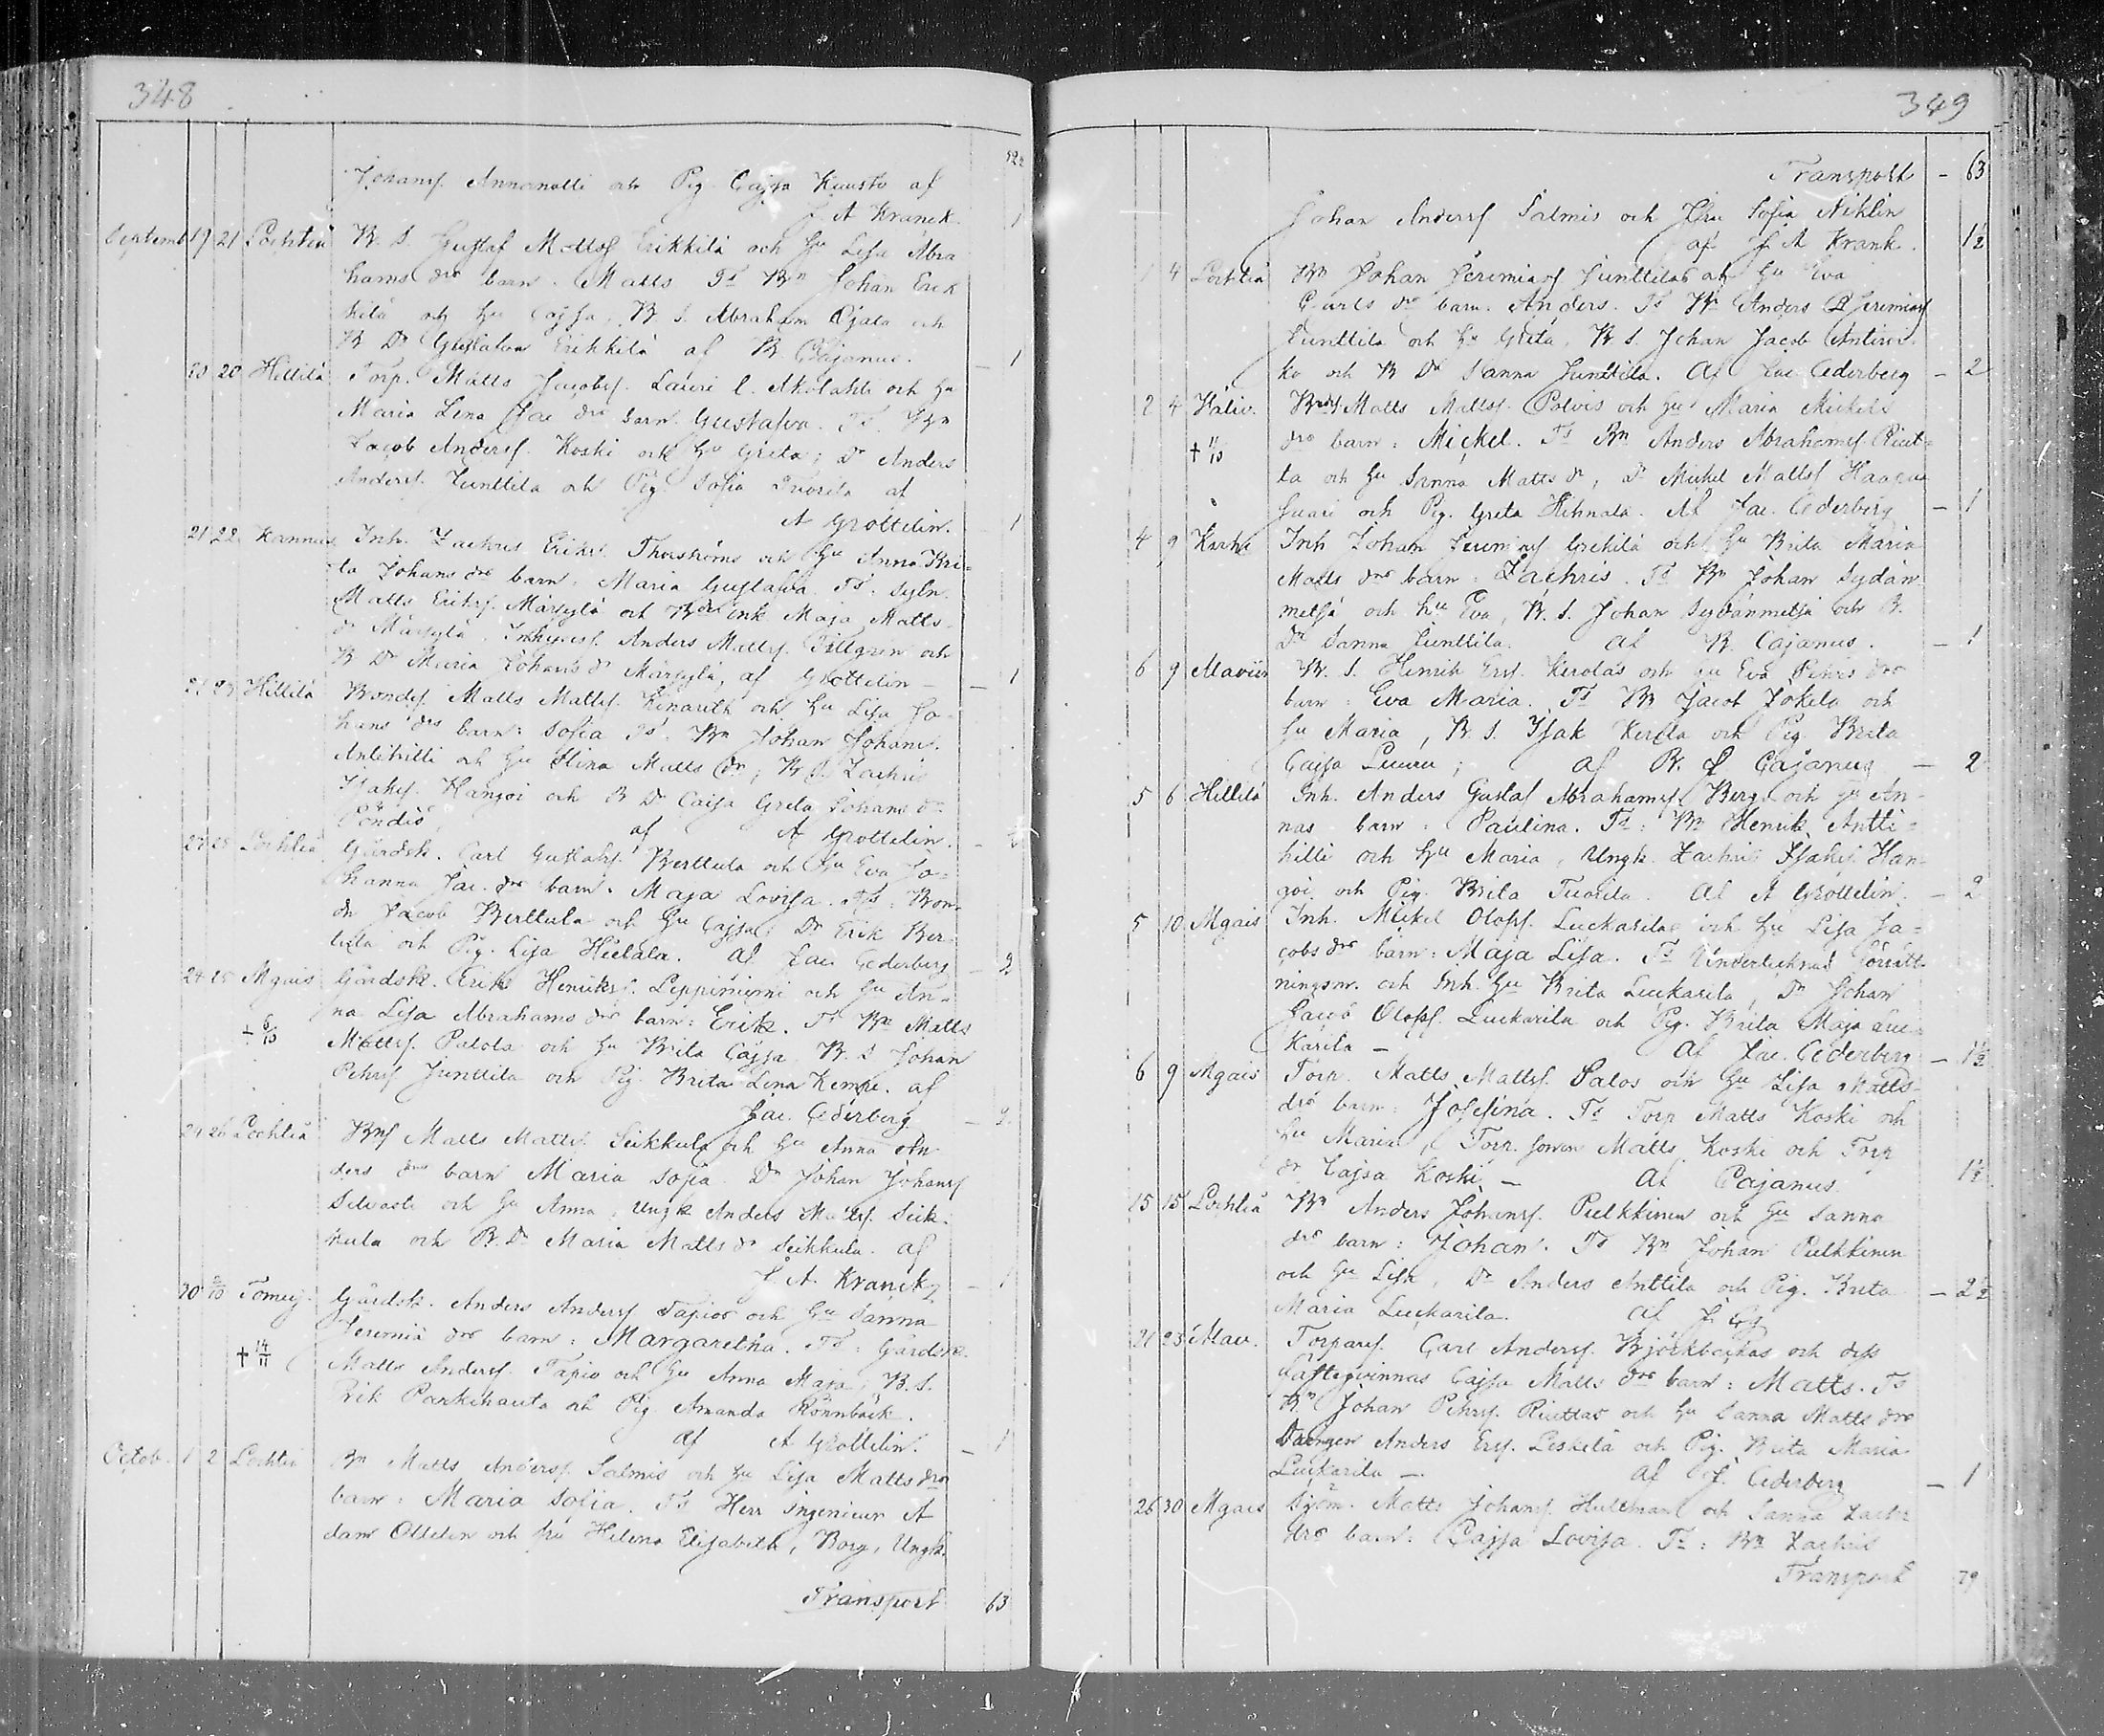 348
52½
Johansf. Annanolli och Pig. Cajsa Kuusto af
J A Kranck. 1
Septemb 19 21 Lochteå B. S. Gustaf Mattsf Erikkilä och hu Lisa Abra
hams drs barn. Matts Ts Bn Johan Erik
kilä och hu Cajsa, B S. Abraham Ojala och
B Dr Gustafva Erikkilä af B Cajanus. — 1
20 20 Hillilä Torp. Matts Jacobsf. Lauri l. Akolahti och hu
Maria Lena Jac drs barn. Gustafva. Ts. Bn
Jacob Andersf. Koski och hu Greta; Dr Anders
Andersf. Junttila och Pig. Sofia Tuorila af
A Grottelin. 1
21 22 Kannus Inh. Zachris Eriks. Thorströms och hu Anna Bri=
ta Johans drs barn: Maria Gustafva. Ts: Syln.
Matts Eriksf. Märsylä och Maja Matts
dr Märsylä. Anders Mattsf. Tillgren och
B Dr Maria Johans dr Märsylä, af Grottelin — 1
21 23 Hillilä Bondes. Matts Mattsf. och hu Lisa Jo-
hans drs barn: Sofia Ts. Bn Johan Johans.
Anttihilli och hu Stina Matts dr; B S. Zachris
Isaksf. Hangoi och B Dr Caisa Greta Johans dr
Pöndiö, af A Grottelin.
25 Lochteå Gårdsk. Carl Gustafsf. Berttula och hu Eva Jo=
hanna Jac. drs barn. Maja Lovisa. Ts: Bon-
dn Jacob Berttula och hu Cajsa; Dr Erik Ber
ttula och Pig. Lisa Hietala. af Jac Cederberg — 2
24 25 Mgais Gårdsk. Erik Henriksf. Leppiniemi och hu An-
na Lisa Abrahams drs barn: Erik. Ts Bn Matts
† 6/10 Mattsf. Palola och hu Brita Cajsa B. S Johan
Pehrsf Junttila och Pig. Brita Lena Kempe. af
Jac. Cederberg — 2.
24 26 Lochteå Bns Matts Mattsf. Seikkula och hu Anna An
ders drs barn Maria Sofia. Dr Johan Johansf
och hu Anna, Ungk Anders Mattsf. Seik-
kula och B. Dr Maria Matts dr Seikkula. af
J A. Kranck — 1
30 2/10 Tomuj. Gårdsk. Anders Andersf Tapios och hu Sanna
Jeremiä drs barn: Margaretha. Ts: Gårdsk.
† 14/11 Matts Andersf. Tapio och hu Anna Maja, B. S.
Erik Parkihauta och Pig. Amanda Rönnbäck.
af A Grottelin. — 1
Octob. 1 2 Lochteå Bn Matts Andersf. Salmis och hu Lisa Matts drs
barn: Maria Sofia. Ts Herr Ingenieur A
dam Ottelin och fru Helena Elisabeth, Borg, Ungk.
Transport 63
349
Transport — 63
Johan Andersf Salmis och Fru Sofia Niklin
af J A Krank. 1½
1 4 Lochteå Bn Johan Jeremiasf Junttilas och hu Eva
Carls drs barn. Anders. Ts Bn Anders Jeremiasf
Junttila och hu Greta, B S. Johan Jacob
ko och B Dr Sanna Junttila. Af Jac Cederberg — 2
2 4 Kaliv. Matts Mattsf. Polvis och hu Maria Mickels
† 11/10 drs barn: Mickel. Ts Bn Anders Abrahamsf. Riut=
ta och hu Sanna Matts dr, Dr Mickel Mattsf
och Pig. Greta Hihnala. Af Jac. Cederberg — 1
4 9 Inh Johan och hu Brita Maria
Matts drs barn: Zachris. Ts Bn Johan Sydän
metsä och hu Eva, B. S. Johan Sydänmetsä och B.
Dr Sanna Junttila. af B. Cajanus. — 1
6 9 B. S. Henrik Ersf. Kerolas och hu Eva Pehrs drs
barn: Eva Maria. Ts Bn Jacob Jokela och
hu Maria, B. S. Isak Kerola och Pig. Brita
Cajsa Luuru; af B. Cajanus — 2
5 6 Hillilä Inh. Anders Gustaf Abrahamsf Berg och hu An-
nas barn: Paulina. Ts: Bn Henrik Antti=
hilli och hu Maria, Ungk. Zachris Isaksf. Han-
goi och Pig. Brita Tuorila. Af A Grottelin. — 2
5 10 Mgais Inh. Mickel Olofsf. Luckarilas och hu Lisa Ja=
cobs drs barn: Maja Lisa. Ts Undertecknad Förrätt-
ningsm. och Inh. hu Brita Luckarila, Dr Johan
Jacob Olofsf. Luckarila och Pig. Brita Maja Luc-
karila — Af Jac. Cederberg — 1½
6 9 Mgais Torp. Matts Mattsf. Palos och hu Lisa Matts-
drs barn: Josefina. Ts Torp Matts Koski och
hu Maria, Torp. sonen Matts Koski och Torp
dr Cajsa Koski, — Af Cajanus 1½
15 15 Lochteå Bn Anders Johansf. Pulkkinen och hu Sanna
drs barn: Johan. Ts Bn Johan Pulkkinen
och hu Lisa, Dr Anders Anttila och Pig. Brita — 2½
Maria Luckarila. Af J Cg
21 23 Mav. Torparef. Carl Andersf. Björkbackas och dess
Cajsa Matts drs barn: Matts. Ts
Bn Johan Pehrsf. Riuttas och hu Sanna Matts drs
Drängen Anders Ersf. Leskelä och Pig. Brita Maria
Luckarila —. Af J. Cederberg — 1
26 30 Mgais Sjöm. Matts Johansf. Hultman och Sanna Zachr
drs barn: Cajsa Lovisa. Ts: Bn Zachris
Transport 79